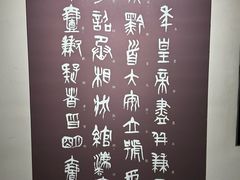 年皇帝盡并兼
黔首大安立號為
詔丞相狀綰灋
壹歉疑者皆明壹